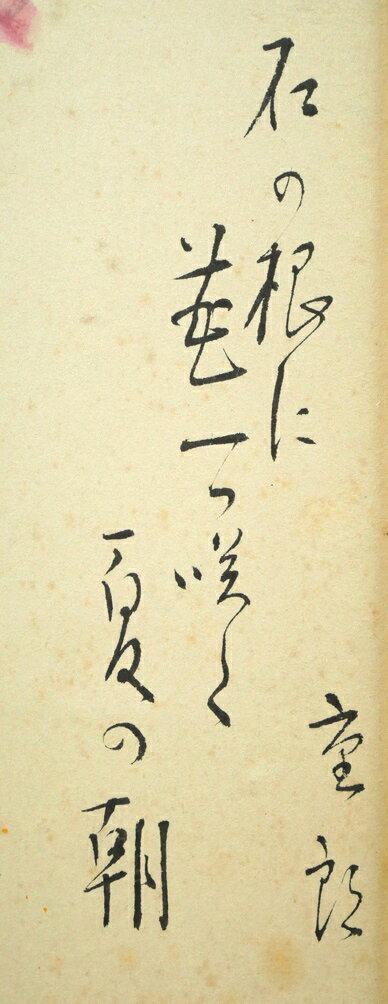 石の根に
菫一つ咲く
夏の朝
童郎